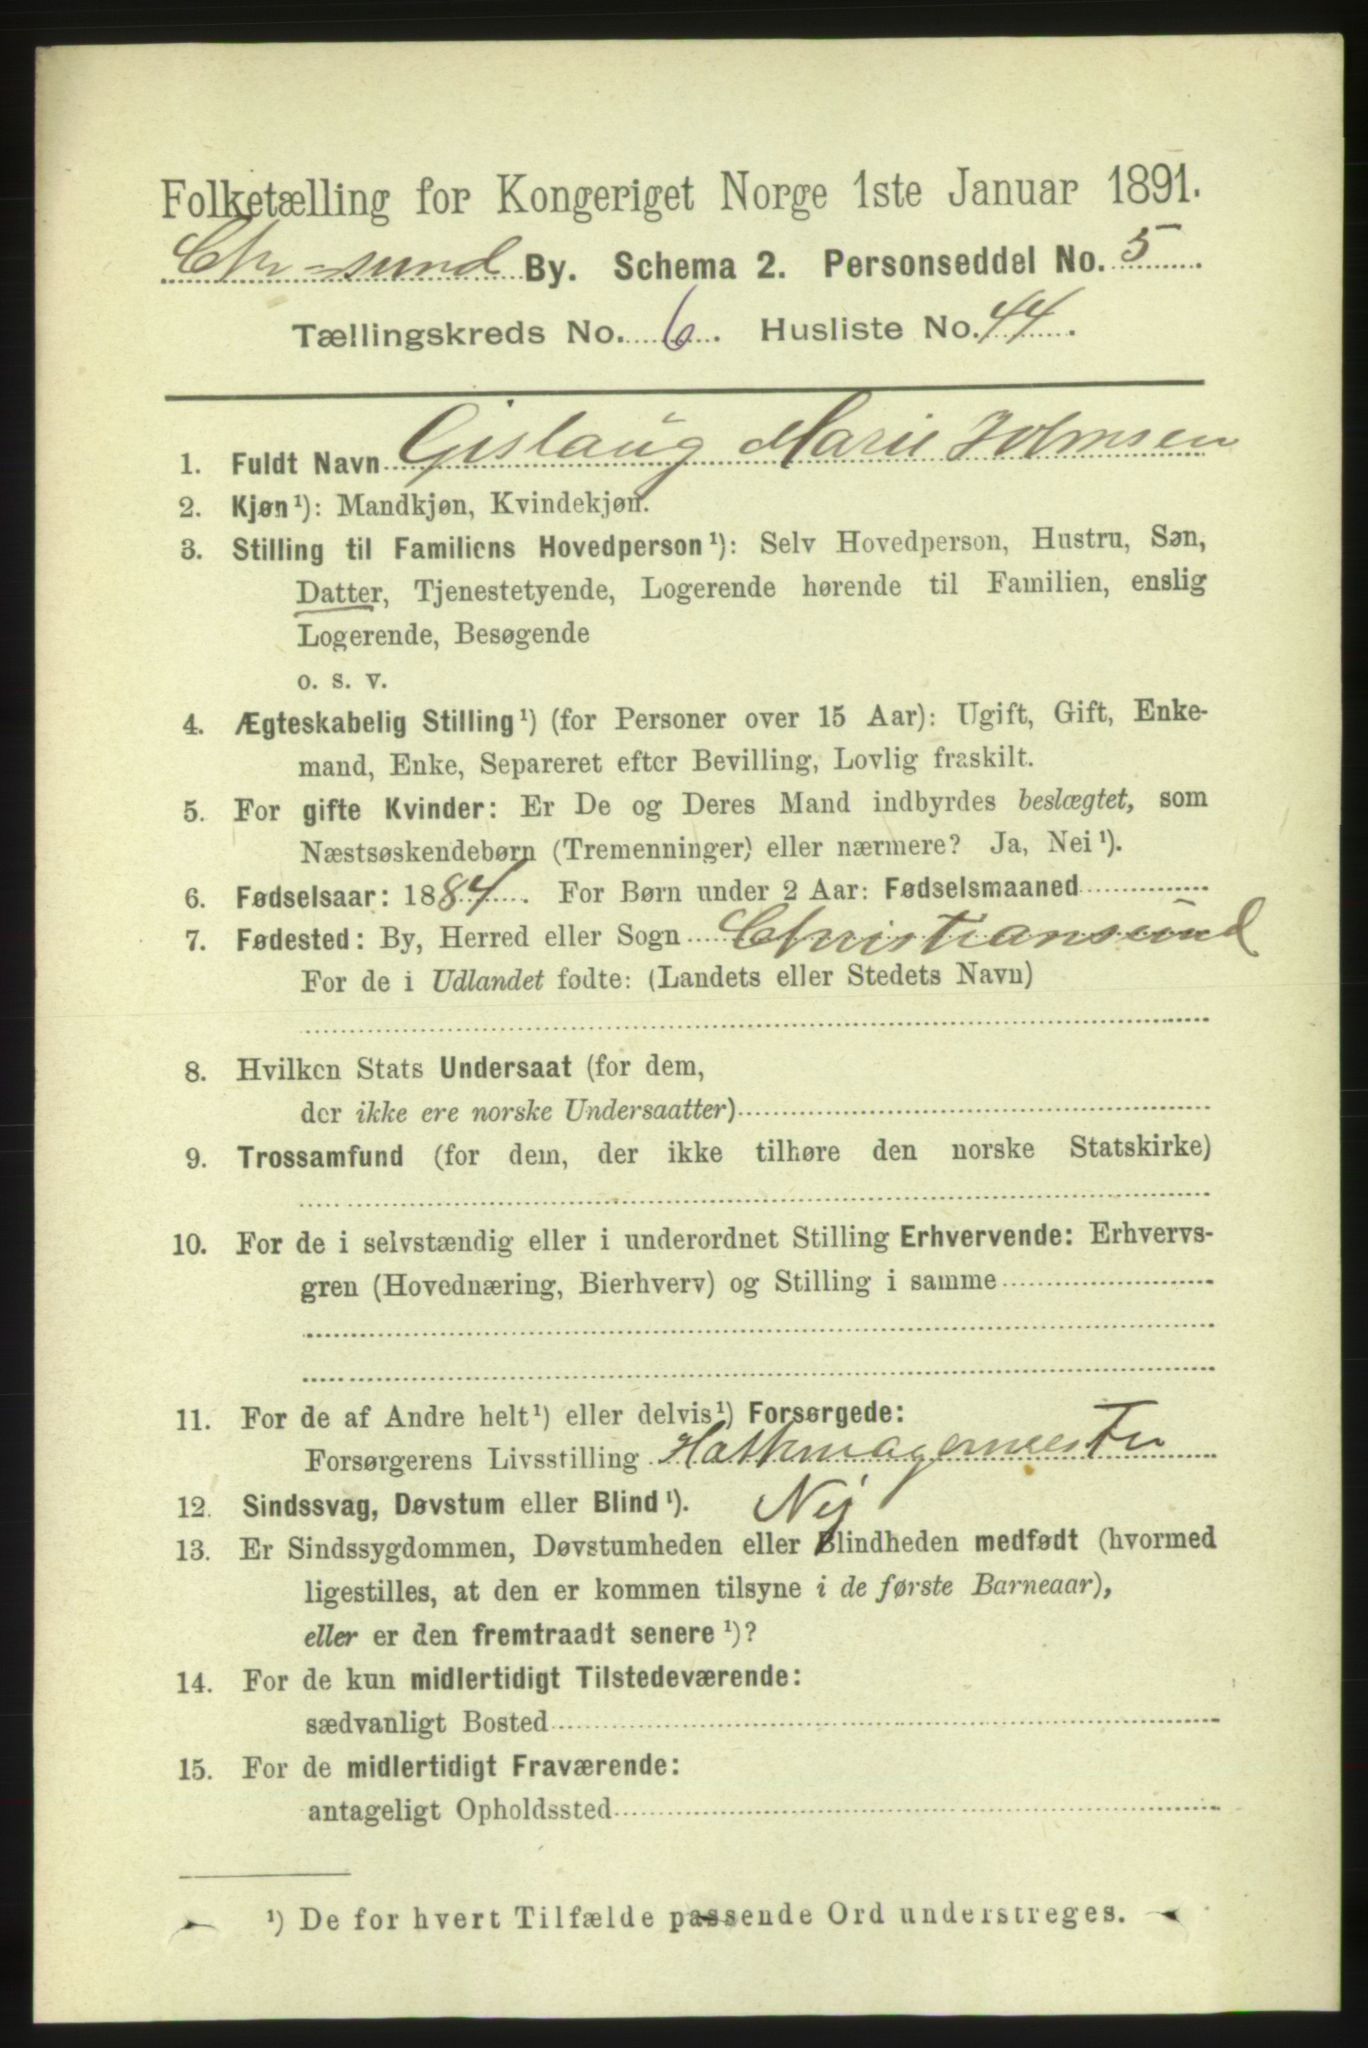 Folketælling for Kongeriget Norge 1ste Januar 1891.
Chr-sund By. Schema 2. Personseddel No. 5
Tællingskreds No. 6. Husliste No. 44.
1. Fuldt Navn Gislaug Marie Holmsen
2. Kjøn¹): Mandkjøn, Kvindekjøn.
3. Stilling til Familiens Hovedperson¹): Selv Hovedperson, Hustru, Søn,
Datter, Tjenestetyende, Logerende hørende til Familien, enslig
Logerende, Besøgende
o. s. v.
4. Ægteskabelig Stilling¹) (for Personer over 15 Aar): Ugift, Gift, Enke-
mand, Enke, Separeret efter Bevilling, Lovlig fraskilt.
5. For gifte Kvinder: Er De og Deres Mand indbyrdes beslægtet, som
Næstsøskendebørn (Tremenninger) eller nærmere? Ja, Nei¹).
6. Fødselsaar: 1884. For Børn under 2 Aar: Fødselsmaaned
7. Fødested: By, Herred eller Sogn Christiansund
For de i Udlandet fødte: (Landets eller Stedets Navn)
8. Hvilken Stats Undersaat (for dem,
der ikke ere norske Undersaatter)
9. Trossamfund (for dem, der ikke tilhøre den norske Statskirke)
10. For de i selvstændig eller i underordnet Stilling Erhvervende: Erhvervs-
gren (Hovednæring, Bierhverv) og Stilling i samme
11. For de af Andre helt¹) eller delvis¹) Forsørgede:
Forsørgerens Livsstilling Hattemagermester
12. Sindssvag, Døvstum eller Blind¹). Nej
13. Er Sindssygdommen, Døvstumheden eller Blindheden medfødt (hvormed
ligestilles, at den er kommen tilsyne i de første Barneaar),
eller er den fremtraadt senere¹)?
14. For de kun midlertidigt Tilstedeværende:
sædvanligt Bosted
15. For de midlertidigt Fraværende:
antageligt Opholdssted
¹) De for hvert Tilfælde passende Ord understreges.